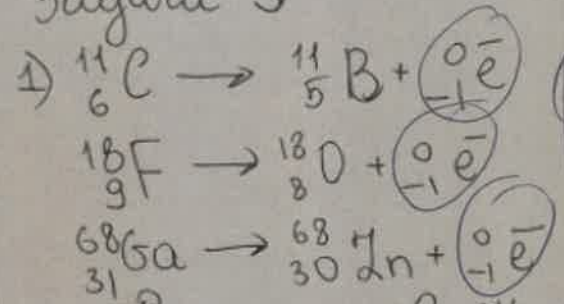 1) ¹¹₆C → ¹¹₅B + ⁰₋₁e⁻
¹⁸₉F → ¹⁸₈O + ⁰₋₁e⁻
⁶⁸₃₁Ga → ⁶⁸₃₀Zn + ⁰₋₁e⁻